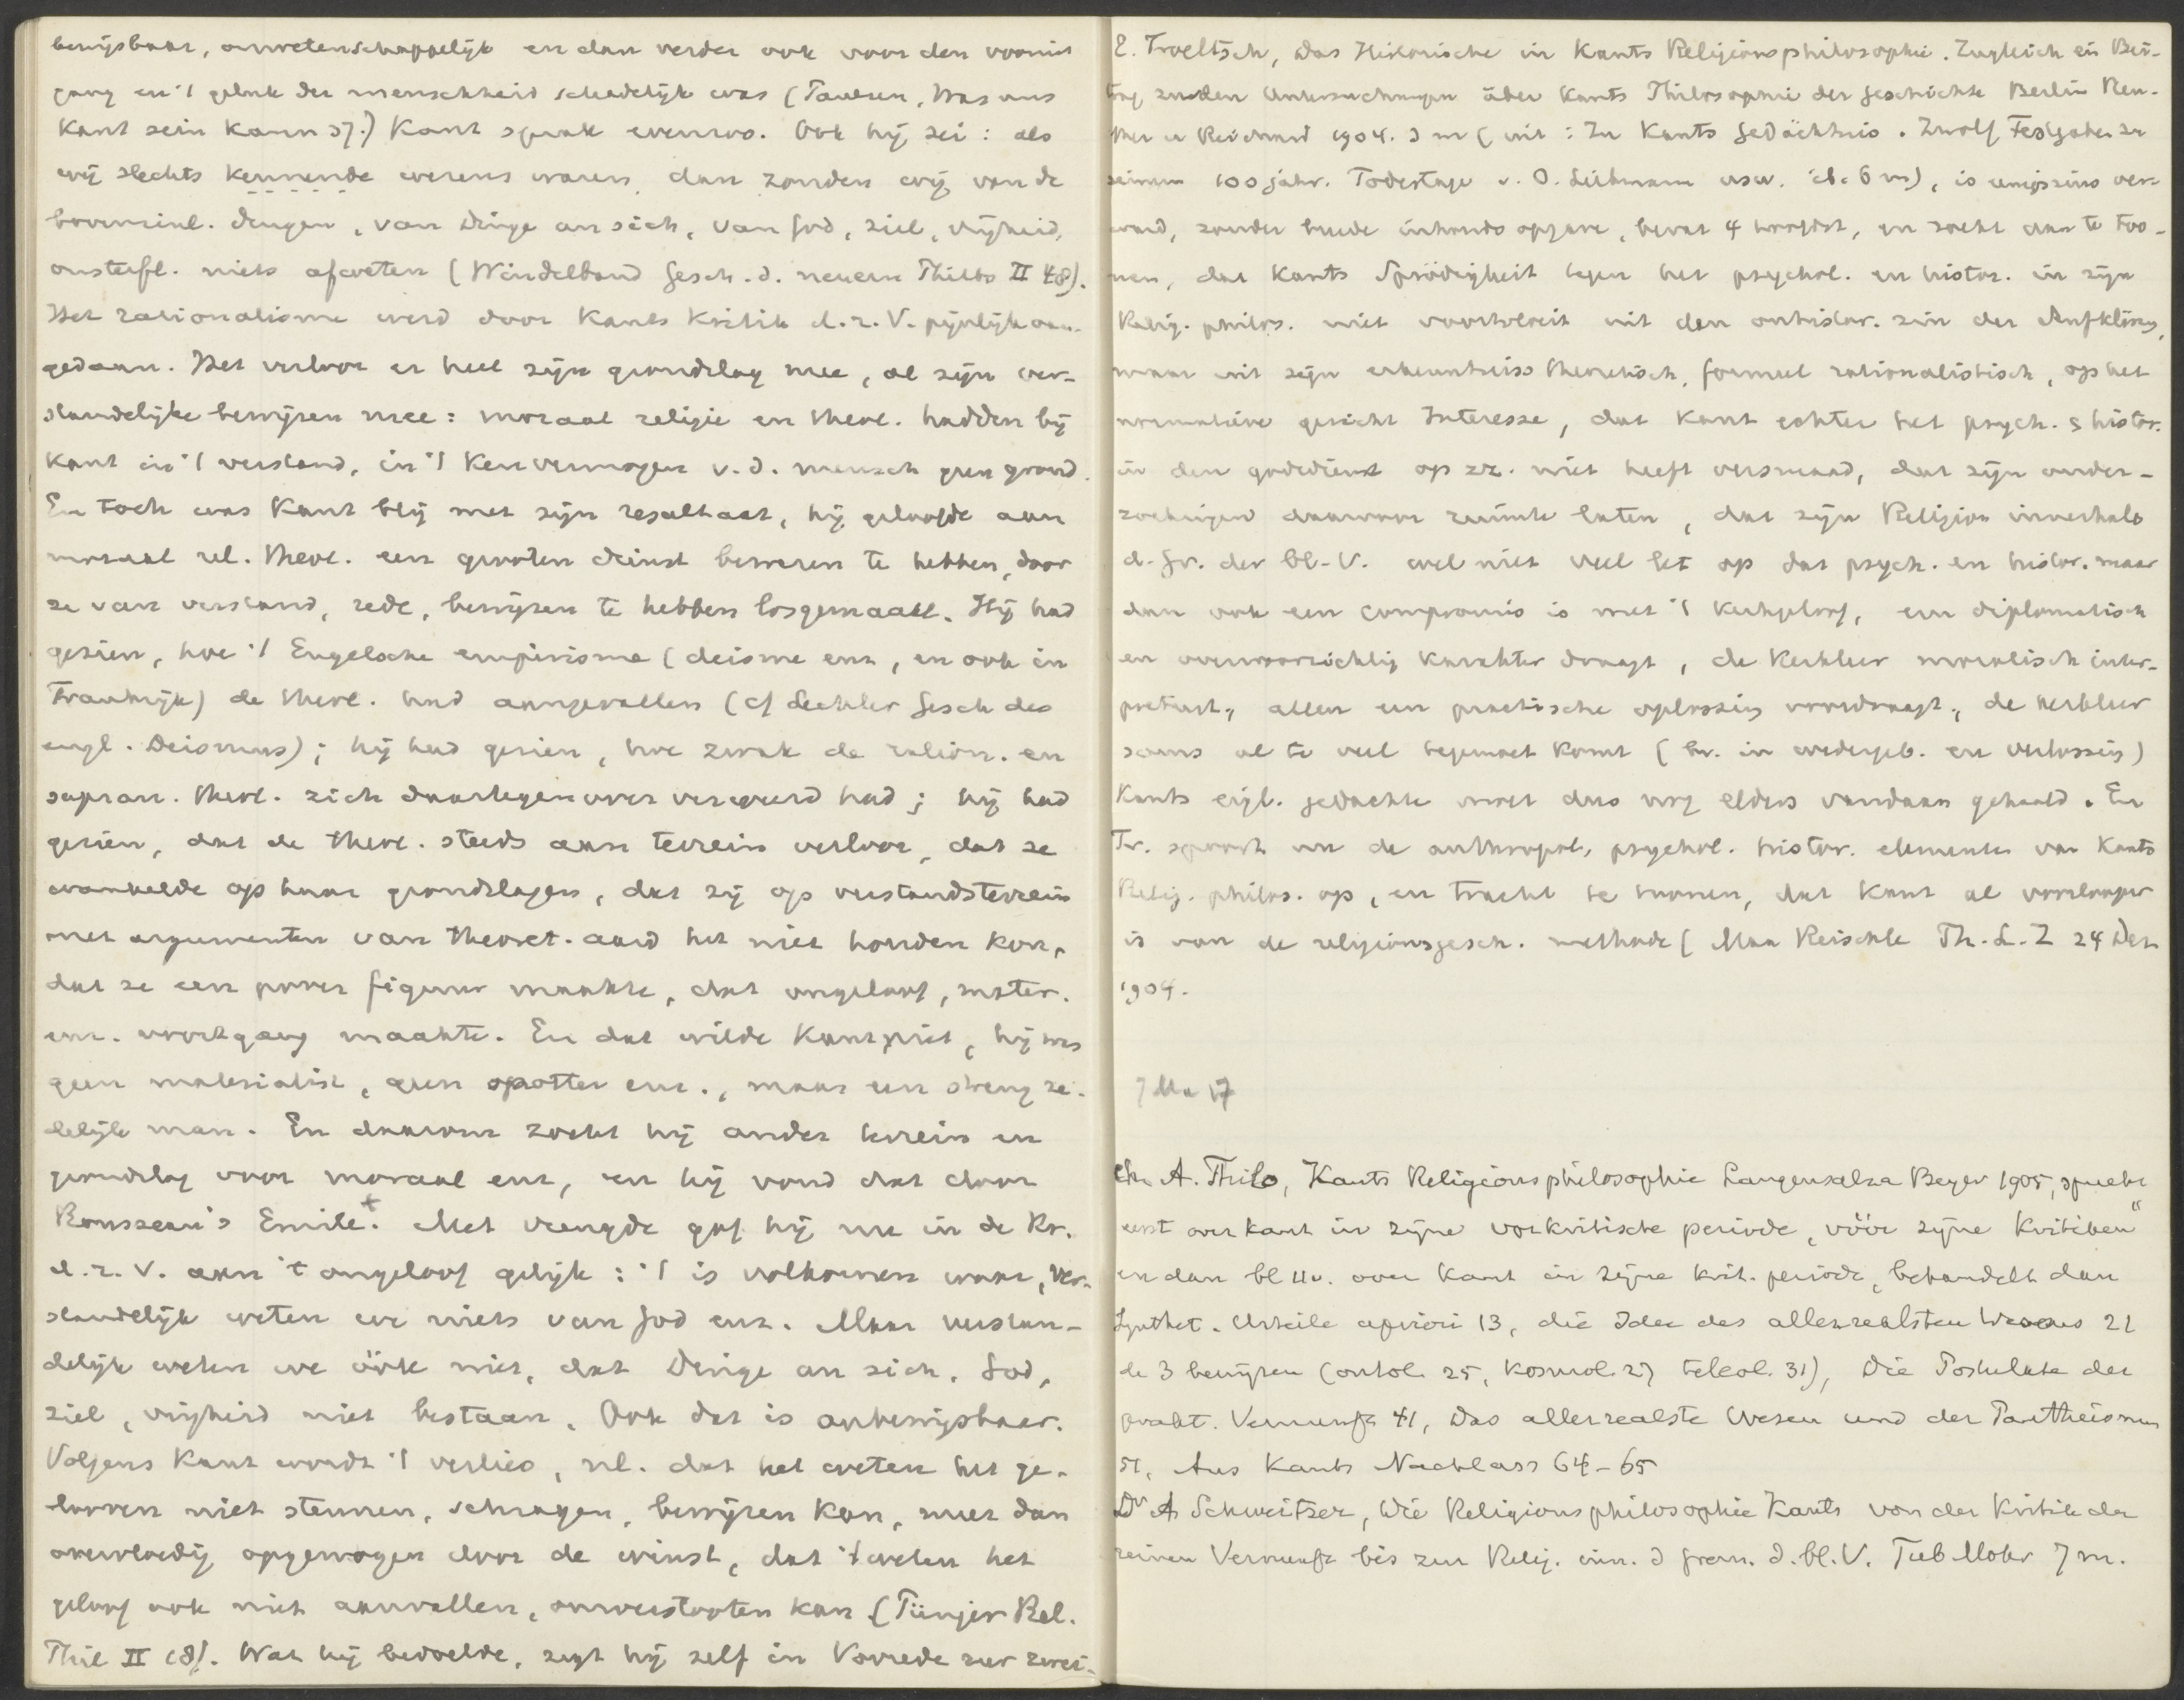 bewijsbaar, onwetenschappelijk en dan verder ook voor den vooruit
gang en 't geluk der menschheid schadelijk was (Paulsen, Was uns
Kant sein kann 37.) Kant sprak evenzoo. Ook hij zei: als
wij slechts kennende wezens waren, dan zouden wij van de
bovenzinl. dingen, van Dinge an sich, van God, ziel, vrijheid,
onsterfl. niets afweten (Windelband Gesch. d. neuern Philos II 48).
Het rationalisme werd door Kants Kritik d. r. V. pijnlijk aan-
gedaan. Het verloor er heel zijn grondslag mee, al zijn ver-
standelijke bewijzen mee: moraal religie en theol. hadden bij
Kant in 't verstand, in 't Kenvermogen v. d. mensch geen grond.
En toch was Kant blij met zijn resultaat, hij geloofde aan
moraal rel. theol. een grooten dienst bewezen te hebben, door
ze van verstand, rede, bewijzen te hebben losgemaakt. Hij had
gezien, hoe 't Engelsche empirisme (deisme enz, en ook in
Frankrijk) de theol. had aangevallen (cf Lechler Gesch des
engl. Deismus); hij had gezien, hoe zwak de ration. en
supran. theol. zich daartegenover verweerd had; hij had
gezien, dat de theol. steeds aan terrein verloor, dat ze
wankelde op haar grondslagen, dat zij op verstandsterrein
met argumenten van theoret. aard het niet houden kon,
dat ze een pover figuur maakte, dat ongeloof, mater.
enz. voortgang maakte. En dat wilde Kant niet, hij was
geen materialist, geen spotter enz., maar een streng ze-
delijk man. En daarom zocht hij ander terrein en
grondslag voor moraal enz, en hij vond dat door
Rousseau's Emile.+ Met vreugde gaf hij nu in de Kr.
d. r. V. aan 't ongeloof gelijk: 't is volkomen waar, ver-
standelijk weten we niets van God enz. Maar verstan-
delijk weten we óók niet, dat Dinge an sich, God,
ziel, vrijheid niet bestaan. Ook dat is onbewijsbaar.
Volgens Kant wordt 't verlies, nl. dat het weten het ge-
looven niet steunen, schragen, bewijzen kan, meer dan
overvloedig opgewogen door de winst, dat 't weten het
geloof ook niet aanvallen, omverstooten kan (Pünjer Rel.
Phil II 18). Wat hij bedoelde, zegt hij zelf in Vorrede zur zwei-
E. Troeltsch, Das Historische in Kants Religionsphilosophie. Zugleich ein Bei-
trag zu den Untersuchungen über Kants Philosophie der Geschichte Berlin Reu-
ther u Reichard 1904. 3 m (uit: Zu Kants Gedächtnis. Zwölf Festgaben zu
seinem 100 jähr. Todestage v. O. Liebmann usw. ib. 6 m), is eenigszins ver-
ward, zonder breede inhoudsopgave, bevat 4 hoofdst, en zoekt aan te too-
nen, dat Kants Sprödigkeit tegen het psychol. en histor. in zijn
Relig. philos. niet voortvloeit uit den onhistor. zin der Aufklärg,
maar uit zijn erkenntniss theoretisch, formeel rationalistisch, op het
normatieve gericht Interesse, dat Kant echter het psych. & histor.
in den godsdienst op zz. niet heeft versmaad, dat zijn onder-
zoekingen daarvoor ruimte laten, dat zijn Religion innerhalb
d. Gr. der bl. V. wel niet veel let op dat psych. en histor. maar
dan ook een compromis is met 't Kerkgeloof, een diplomatisch
en onvoorzichtig karakter draagt, de Kerkleer moralisch inter-
preteert, alleen een practische oplossing voordraagt, de kerkleer
soms al te veel tegemoet komt (bv. in wedergeb. en verlossing)
Kants eigl. gedachte moet dus nog elders vandaan gehaald. En
Tr. spoort nu de anthropol., psychol. histor. elementen van Kants
Relig. philos. op, en tracht te toonen, dat Kant al voorlooper
is van de religionsgesch. methode (Max Reischle Th. L. Z 24 Dez
1904.
Ch. A. Thilo, Kants Religionsphilosophie Langensalza Beyer 1905, spreekt
eerst over Kant in zijne vorkritische periode, vóór zijne Kritiken"
en dan bl 11v. over Kant in zijne krit. periode, behandelt dan
Synthet. Urteile apriori 13, die Idee des allerrealsten Wesens 21
de 3 bewijzen (ontol. 25, kosmol. 27 teleol. 31), Die Postulate der
prakt. Vernunft 41, Das allerrealste Wesen und der Pantheismus
51, Aus Kants Nachlass 64-65
Dr A Schweitzer, Die Religionsphilosophie Kants von der Kritik der
reinen Vernunft bis zur Relig. inn. d Gren. d. bl. V. Tüb Mohr 7 m.